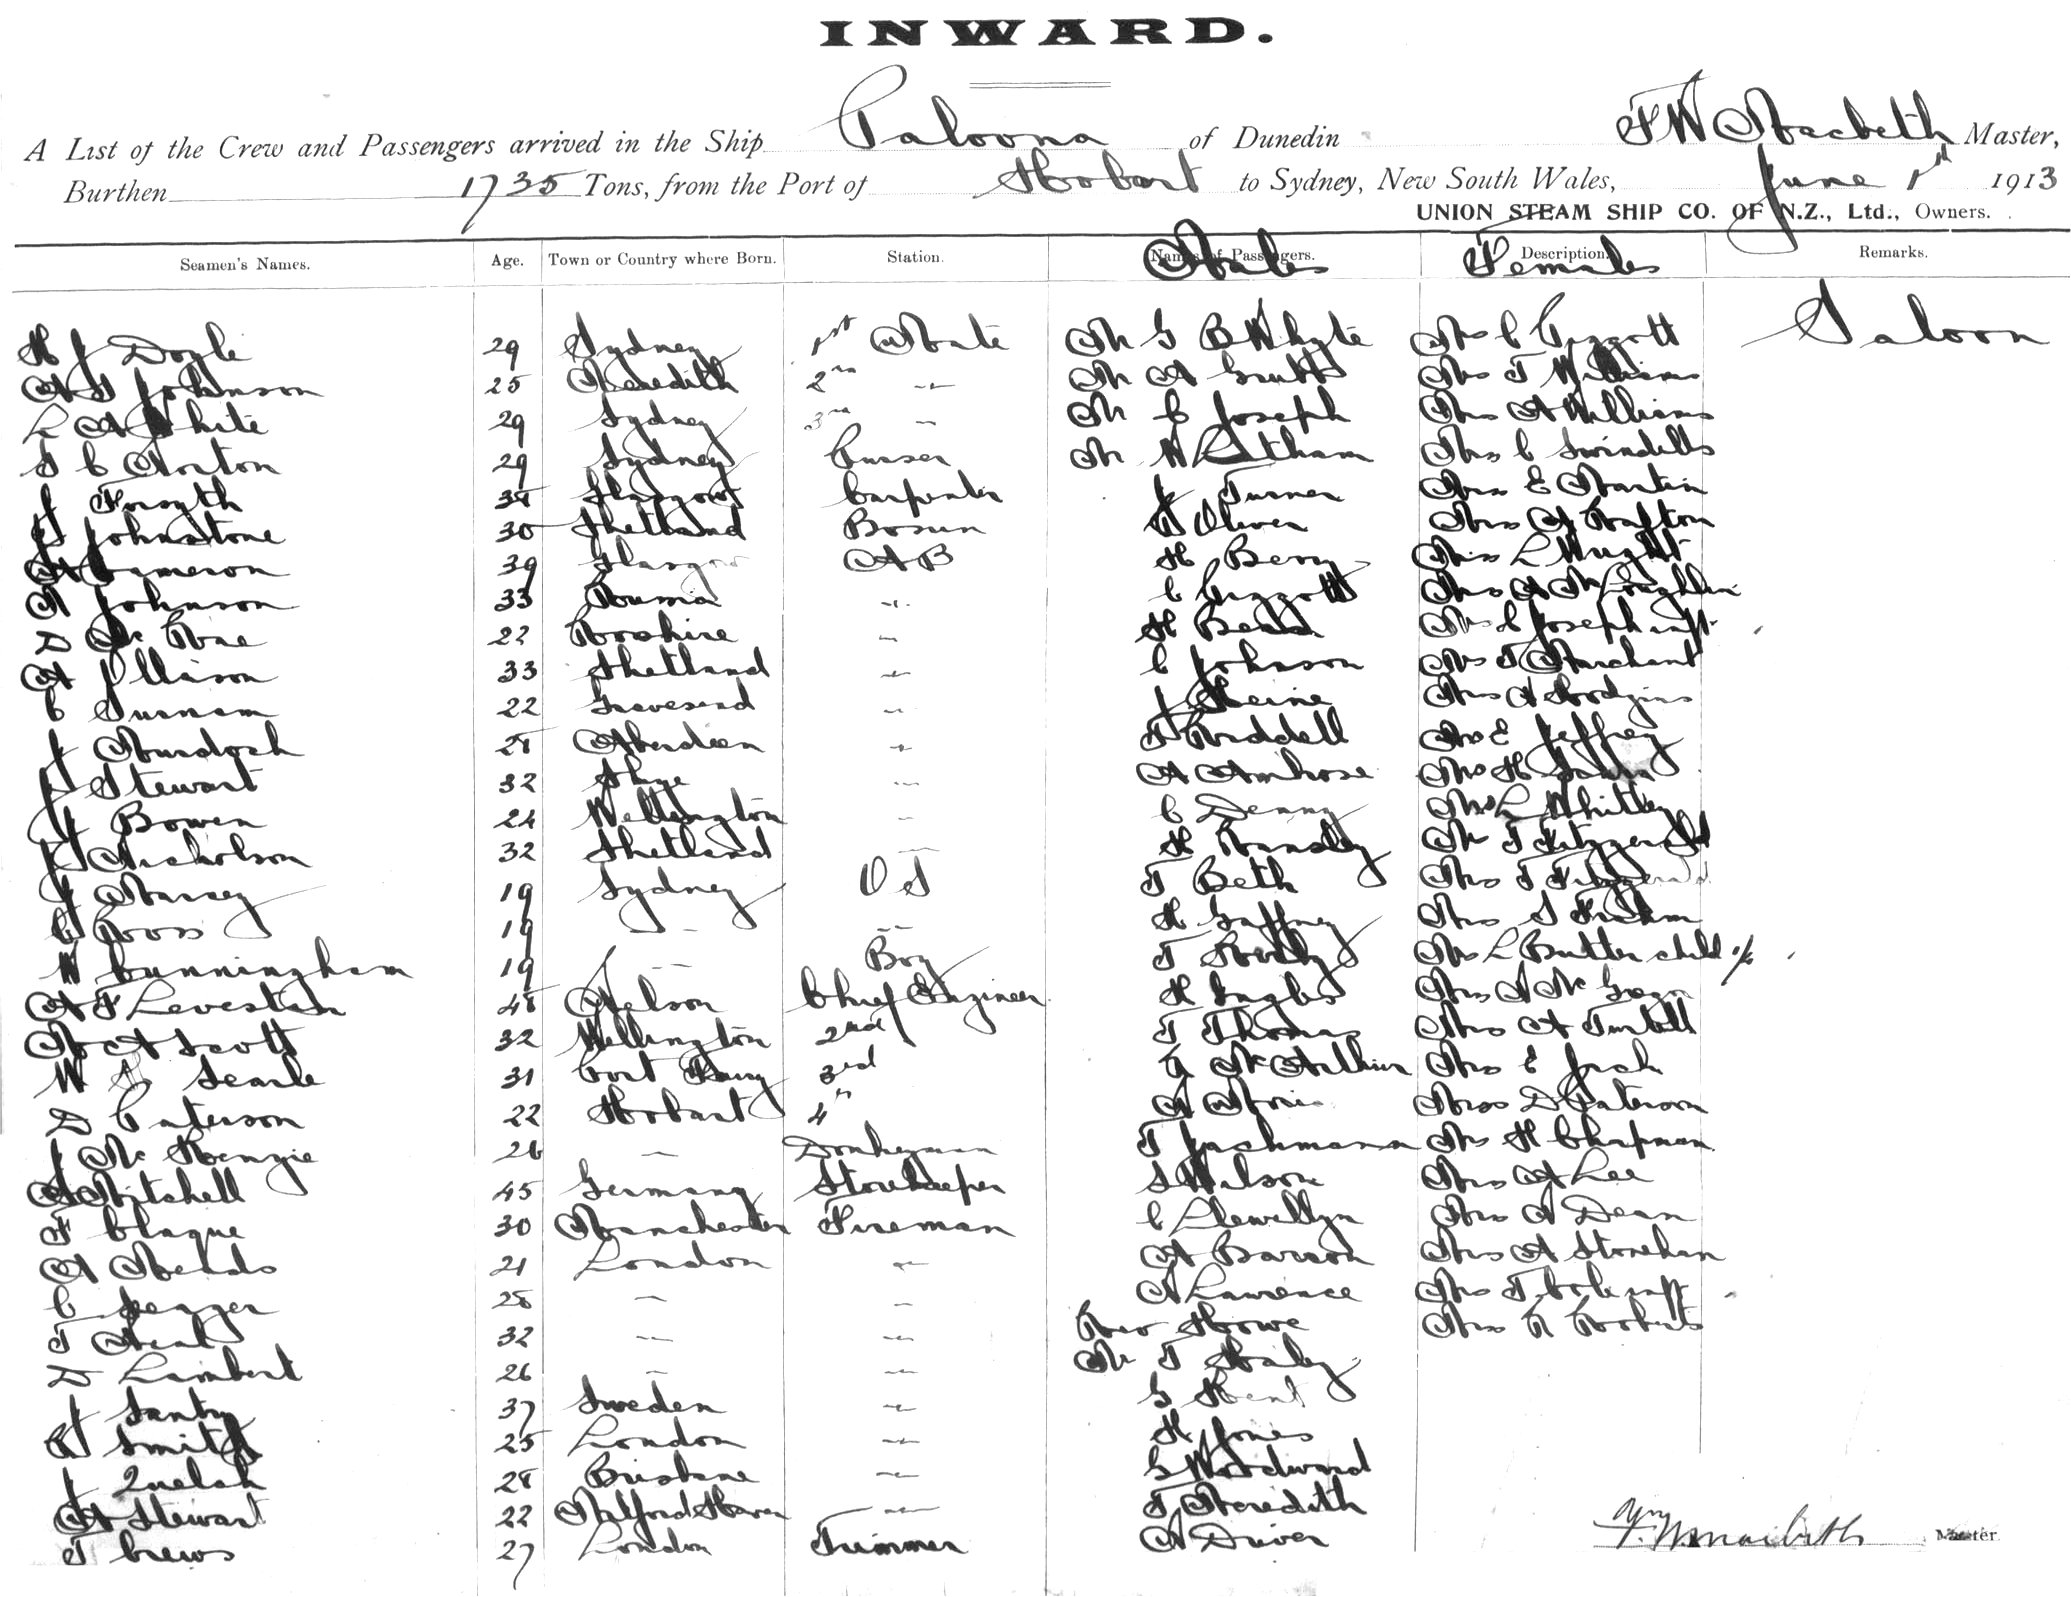 INWARD.
A List of the Crew and Passengers arrived in the Ship Paloona of Dunedin F W Macbeth Master,
Burthen 1735 Tons, from the Port of Hobart to Sydney, New South Wales, June 1st 1913
UNION STEAM SHIP CO. OF N.Z., Ltd., Owners.
Seamen's Names. Age. Town or Country where Born. Station. Names of Passengers. Description. Remarks.
Males Females
H J Doyle 29 Sydney 1st Mate Mr G B Whyte Mrs C Piggott Saloon
A J Johnson 25 Meredith 2nd -"- Mr A Mrs T Williams
L A White 29 Sydney 3rd -"- Mr C Joseph Mrs A Williams
T C Norton 29 Sydney Purser Mr W Latham Mrs C Swindells
J Forsyth 34 Glasgow Carpenter J Turner Mrs E Martin
J Johnstone 30 Shetland Bosun T Oliver Mrs A Rafton
A Cameron 39 Glasgow A B H Berry Miss L Wright
A Johnson 33 Russia -"- C Piggott Mrs A McLoughlin
D McRae 22 Rosshire -"- H Mrs C Joseph inft
A Ollason 33 Shetland -"- C Johnson Mrs T Marchant
C Surnam 22 Gravesend -"- J Heine Mrs A Hodgins
J Murdoch 28 Aberdeen -"- T Riddell Mrs E Jeffrey
J Stewart 32 Skye -"- A Ambrose Mrs H
J Bowen 24 Wellington -"- C Denny Mrs L Whitley
J Nicholson 32 Shetland -"- H Mr T Fitzgerald
J Marcey 19 Sydney O S T Beth Mrs T Fitzgerald
C Ross 18 -"- -"- H Gaffney Mrs
W Cunningham 19 -"- Boy T Mrs L Butter child 1/2
A F Levestan 48 Nelson Chief Engineer H Ingles Mrs A McGregor
A Scott 32 Wellington 2nd T Thomas Mrs A
W G Searle 31 Port 3rd A McArthur Mrs E Jack
D Paterson 22 Hobart 4th A Mrs D Paterson
J McKenzie 26 -"- Donkeyman T Jachmann Mrs H Chapman
A Mitchell 45 Germany Storekeeper S Wilson Mrs A Lee
F Clague 30 Manchester Fireman C Llewellyn Mrs A Dean
A Meads 21 London -"- A Barson Mrs A Stonehan
C Segger 28 -"- -"- A Lawrence Mrs T Cole inft
T Neal 32 -"- -"- Rev Howe Mrs R Roberts
D Lambert 26 -"- -"- Mr T Haley
J Santry 37 Sweden -"- G Kent
A Smith 25 London -"- H Jones
J Quelch 28 Brisbane -"- G Woodward
A Stewart 22 Milford Haven -"- T Meredith
T Crews 27 London Trimmer A Driver
F.W. Macbeth Master.